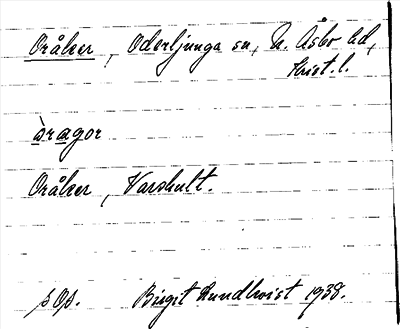 Oråker, Oderljunga sn, N. Åsbo hd,
Krist. l.
àragor
Oråker, Varshult.
s Op. Birgit Rundkvist 1938.